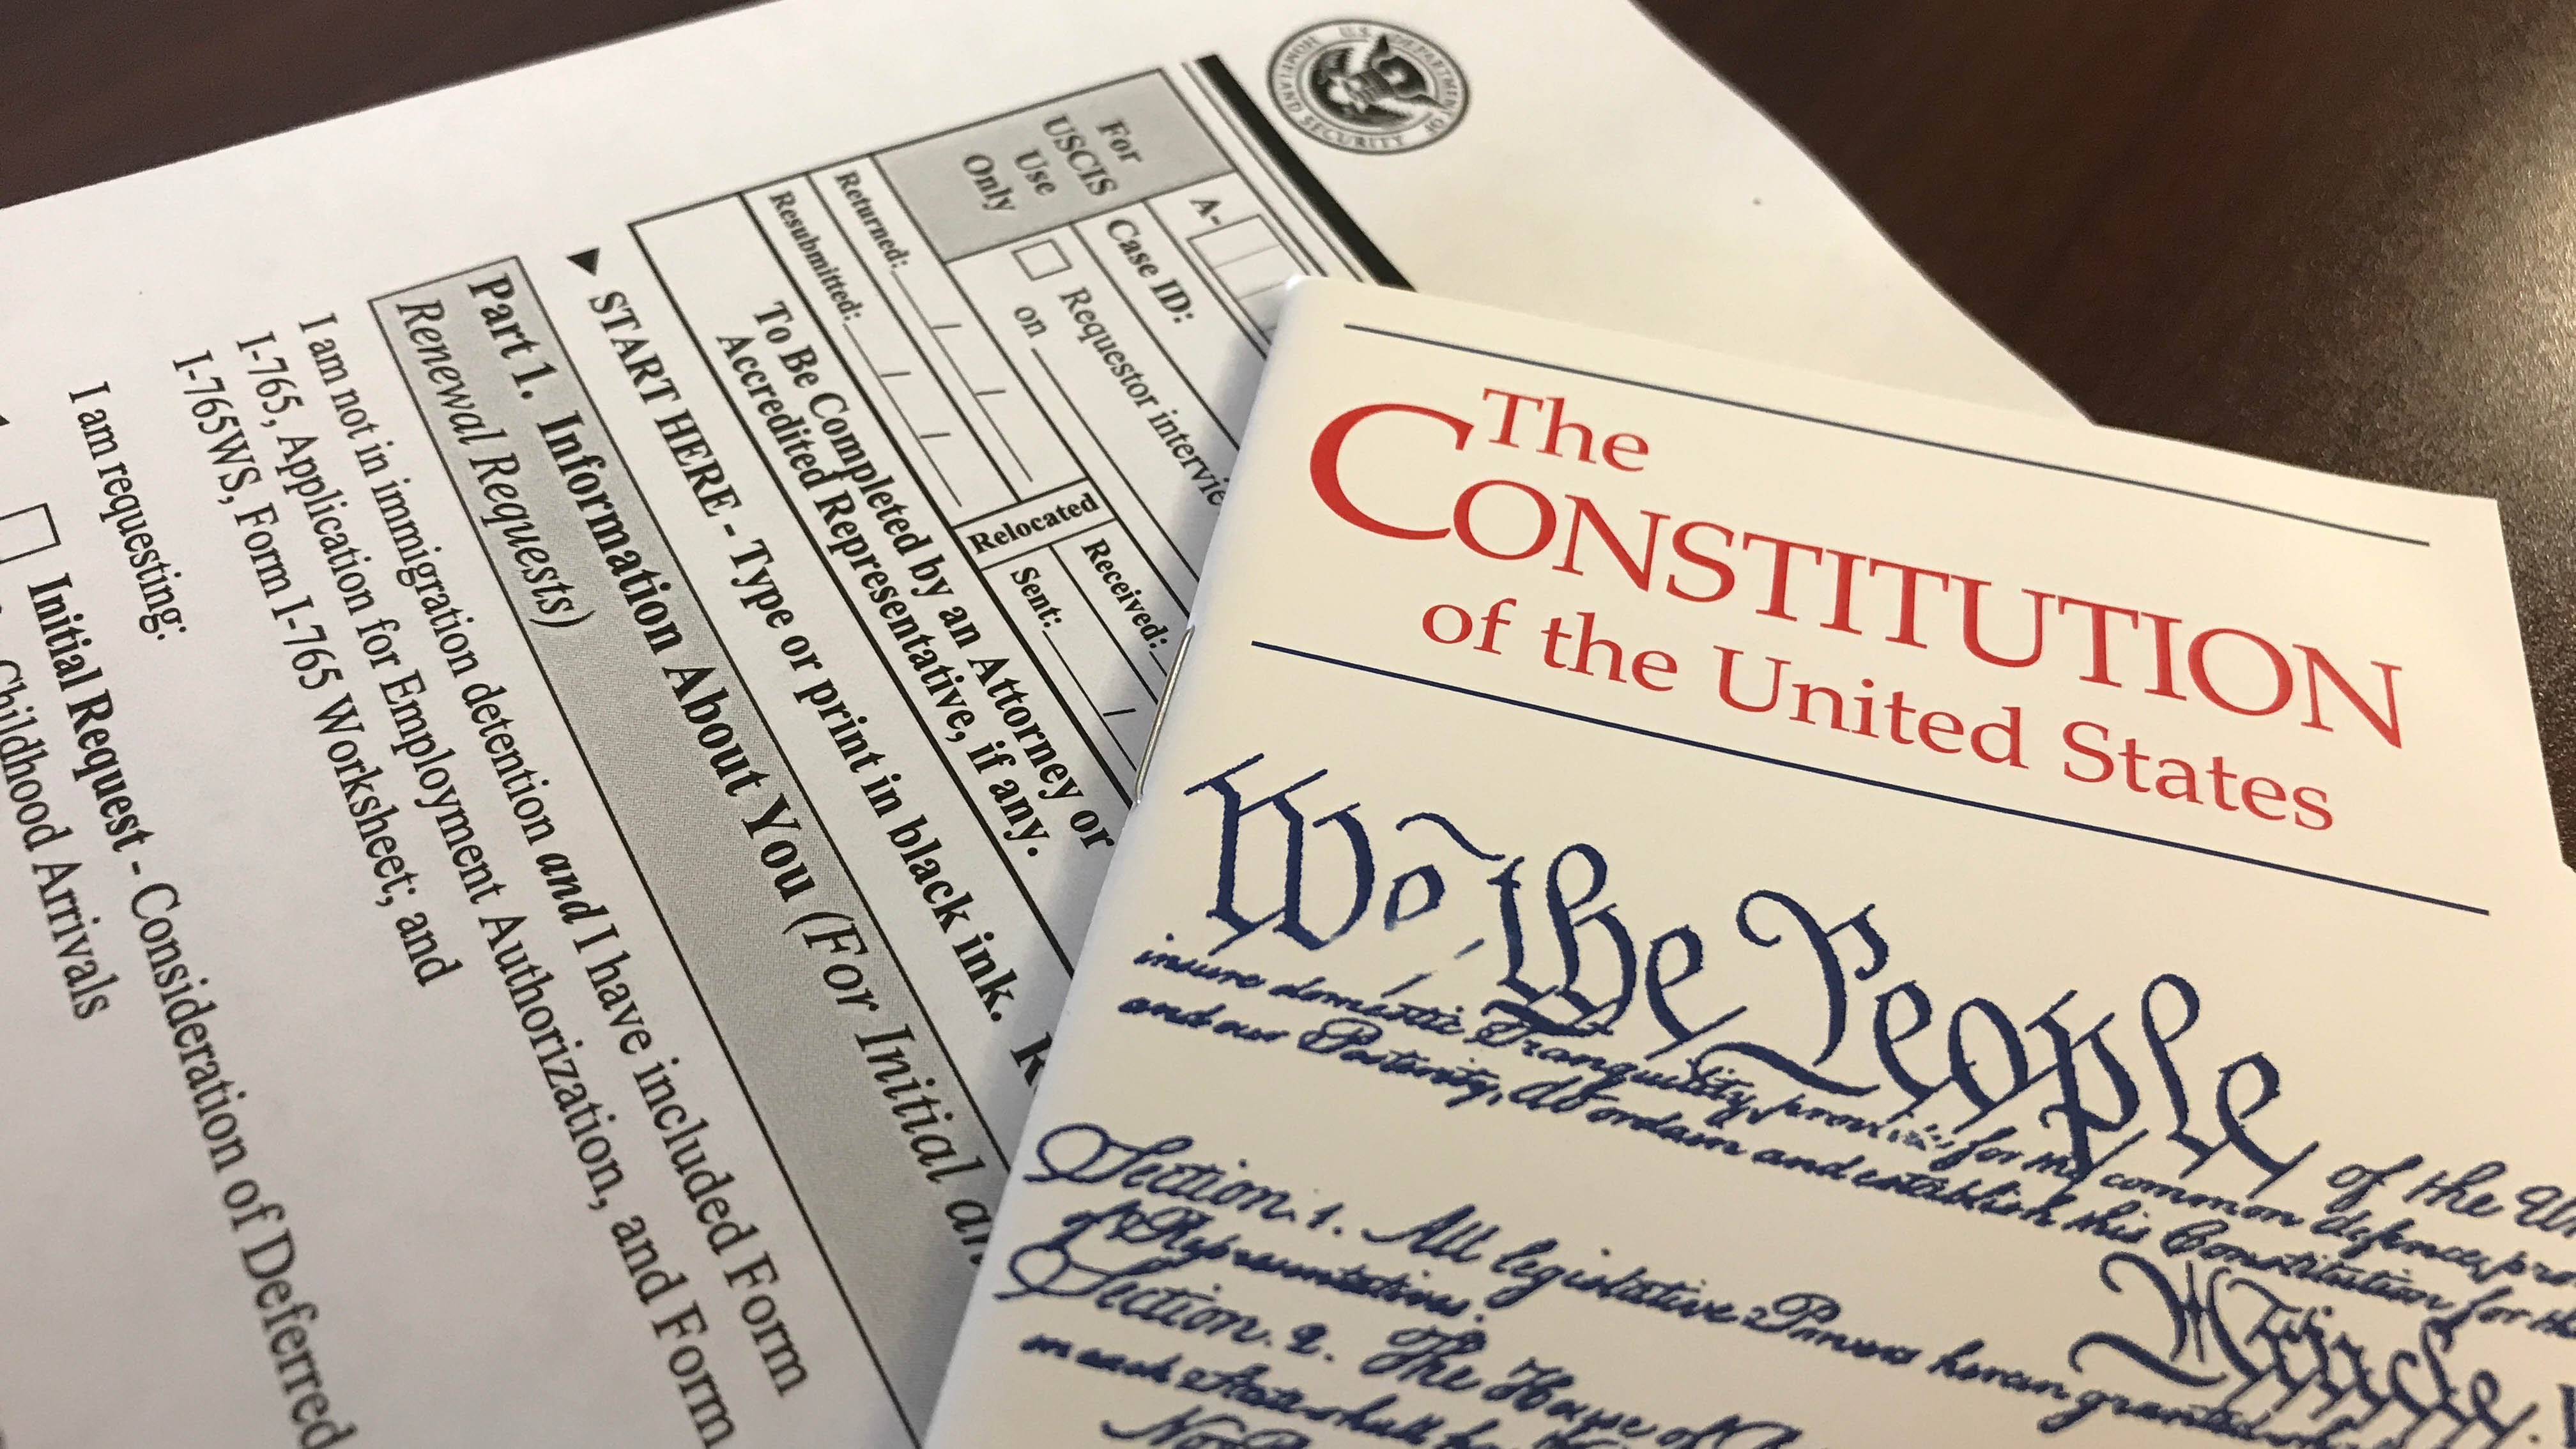 U.S. DEPARTMENT OF HOMELAND SECURITY
For
USCIS
Use
Only
A-
Case ID:
Requestor intervie
on
Returned:
Resubmitted:
Relocated
Received:
Sent:
To Be Completed by an Attorney or
Accredited Representative, if any.
▶ START HERE - Type or print in black ink.
Part 1. Information About You (For Initial an
Renewal Requests)
I am not in immigration detention and I have included Form
I-765, Application for Employment Authorization, and Form
I-765WS, Form I-765 Worksheet; and
I am requesting:
Initial Request - Consideration of Deferred
Childhood Arrivals
The
CONSTITUTION
of the United States
We the People of the Un
insure domestic Tranquility, provide for the common defence, pro
and our Posterity, do ordain and establish this Constitution for the
Section. 1. All legislative Powers herein granted
of Representatives.
Section. 2. The House of
in each State shall